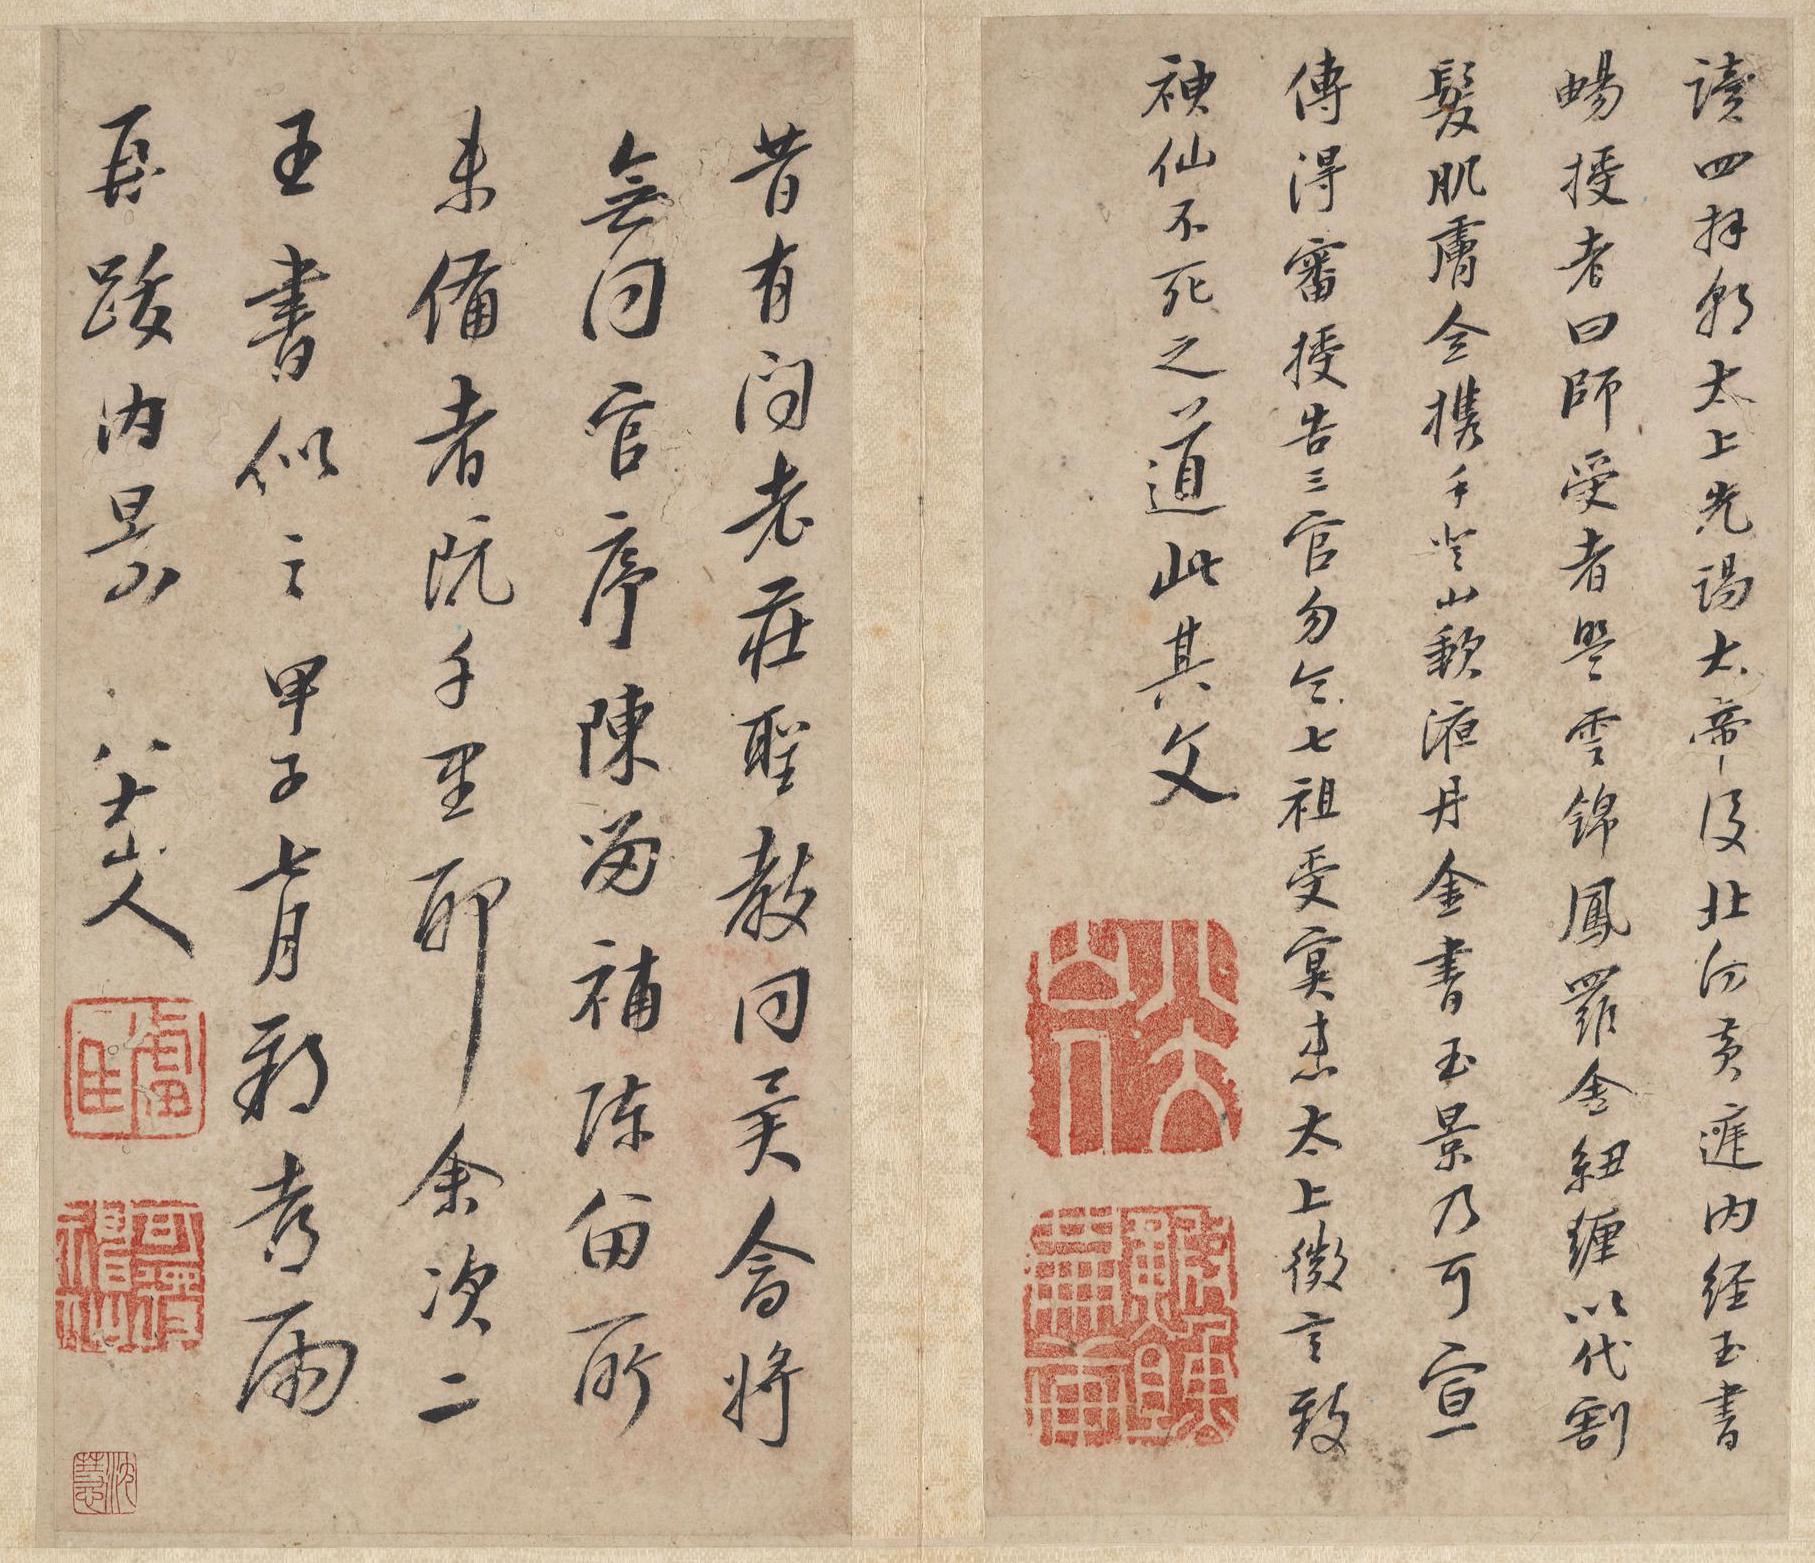 讀四拜朝太上先謁太帝後北向黃庭內經玉書
暢授者曰師受者盟雲錦鳳羅金紐纏以代割
髮肌膚全攜手登山歃液丹金書玉景乃可宣
傳得審授告三官勿令七祖受冥患太上微言致
神仙不死之道此其文
昔有問老莊聖教同異會將
無同官序陳留補陳留所
未備者阮千里耶余次二
王書似之甲子七月新秋雨
再跋內景 八大山人
八大山人